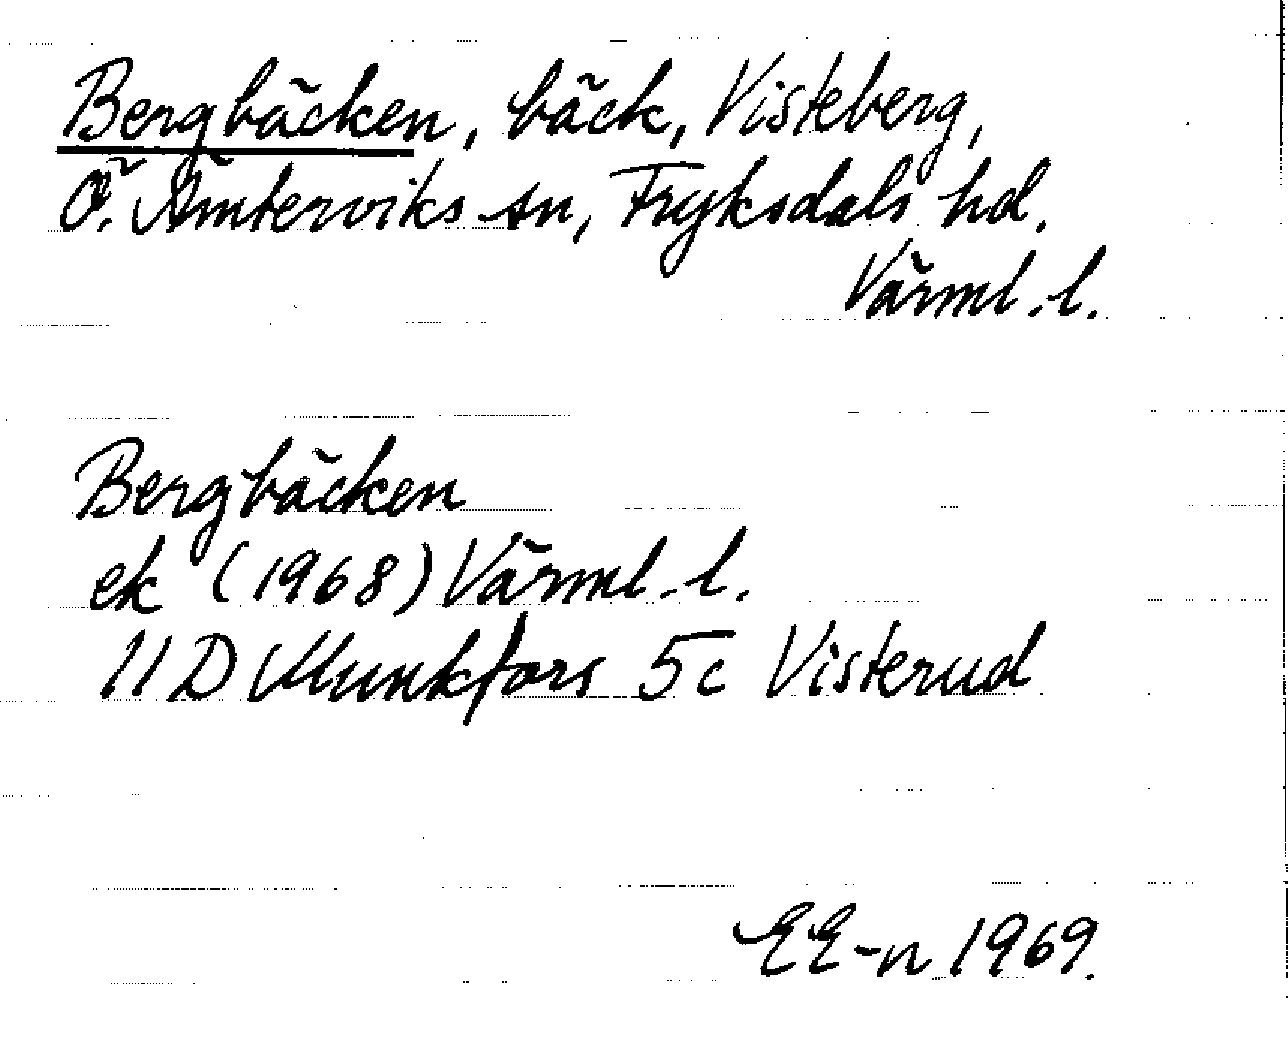 Bergbäcken, bäck, Visteberg,
Ö. Ämterviks sn, Fryksdals hd.
Värml. l.
Bergbäcken
ek (1968) Värml. l.
11 D Munkfors 5c Visterud
EE-n 1969.